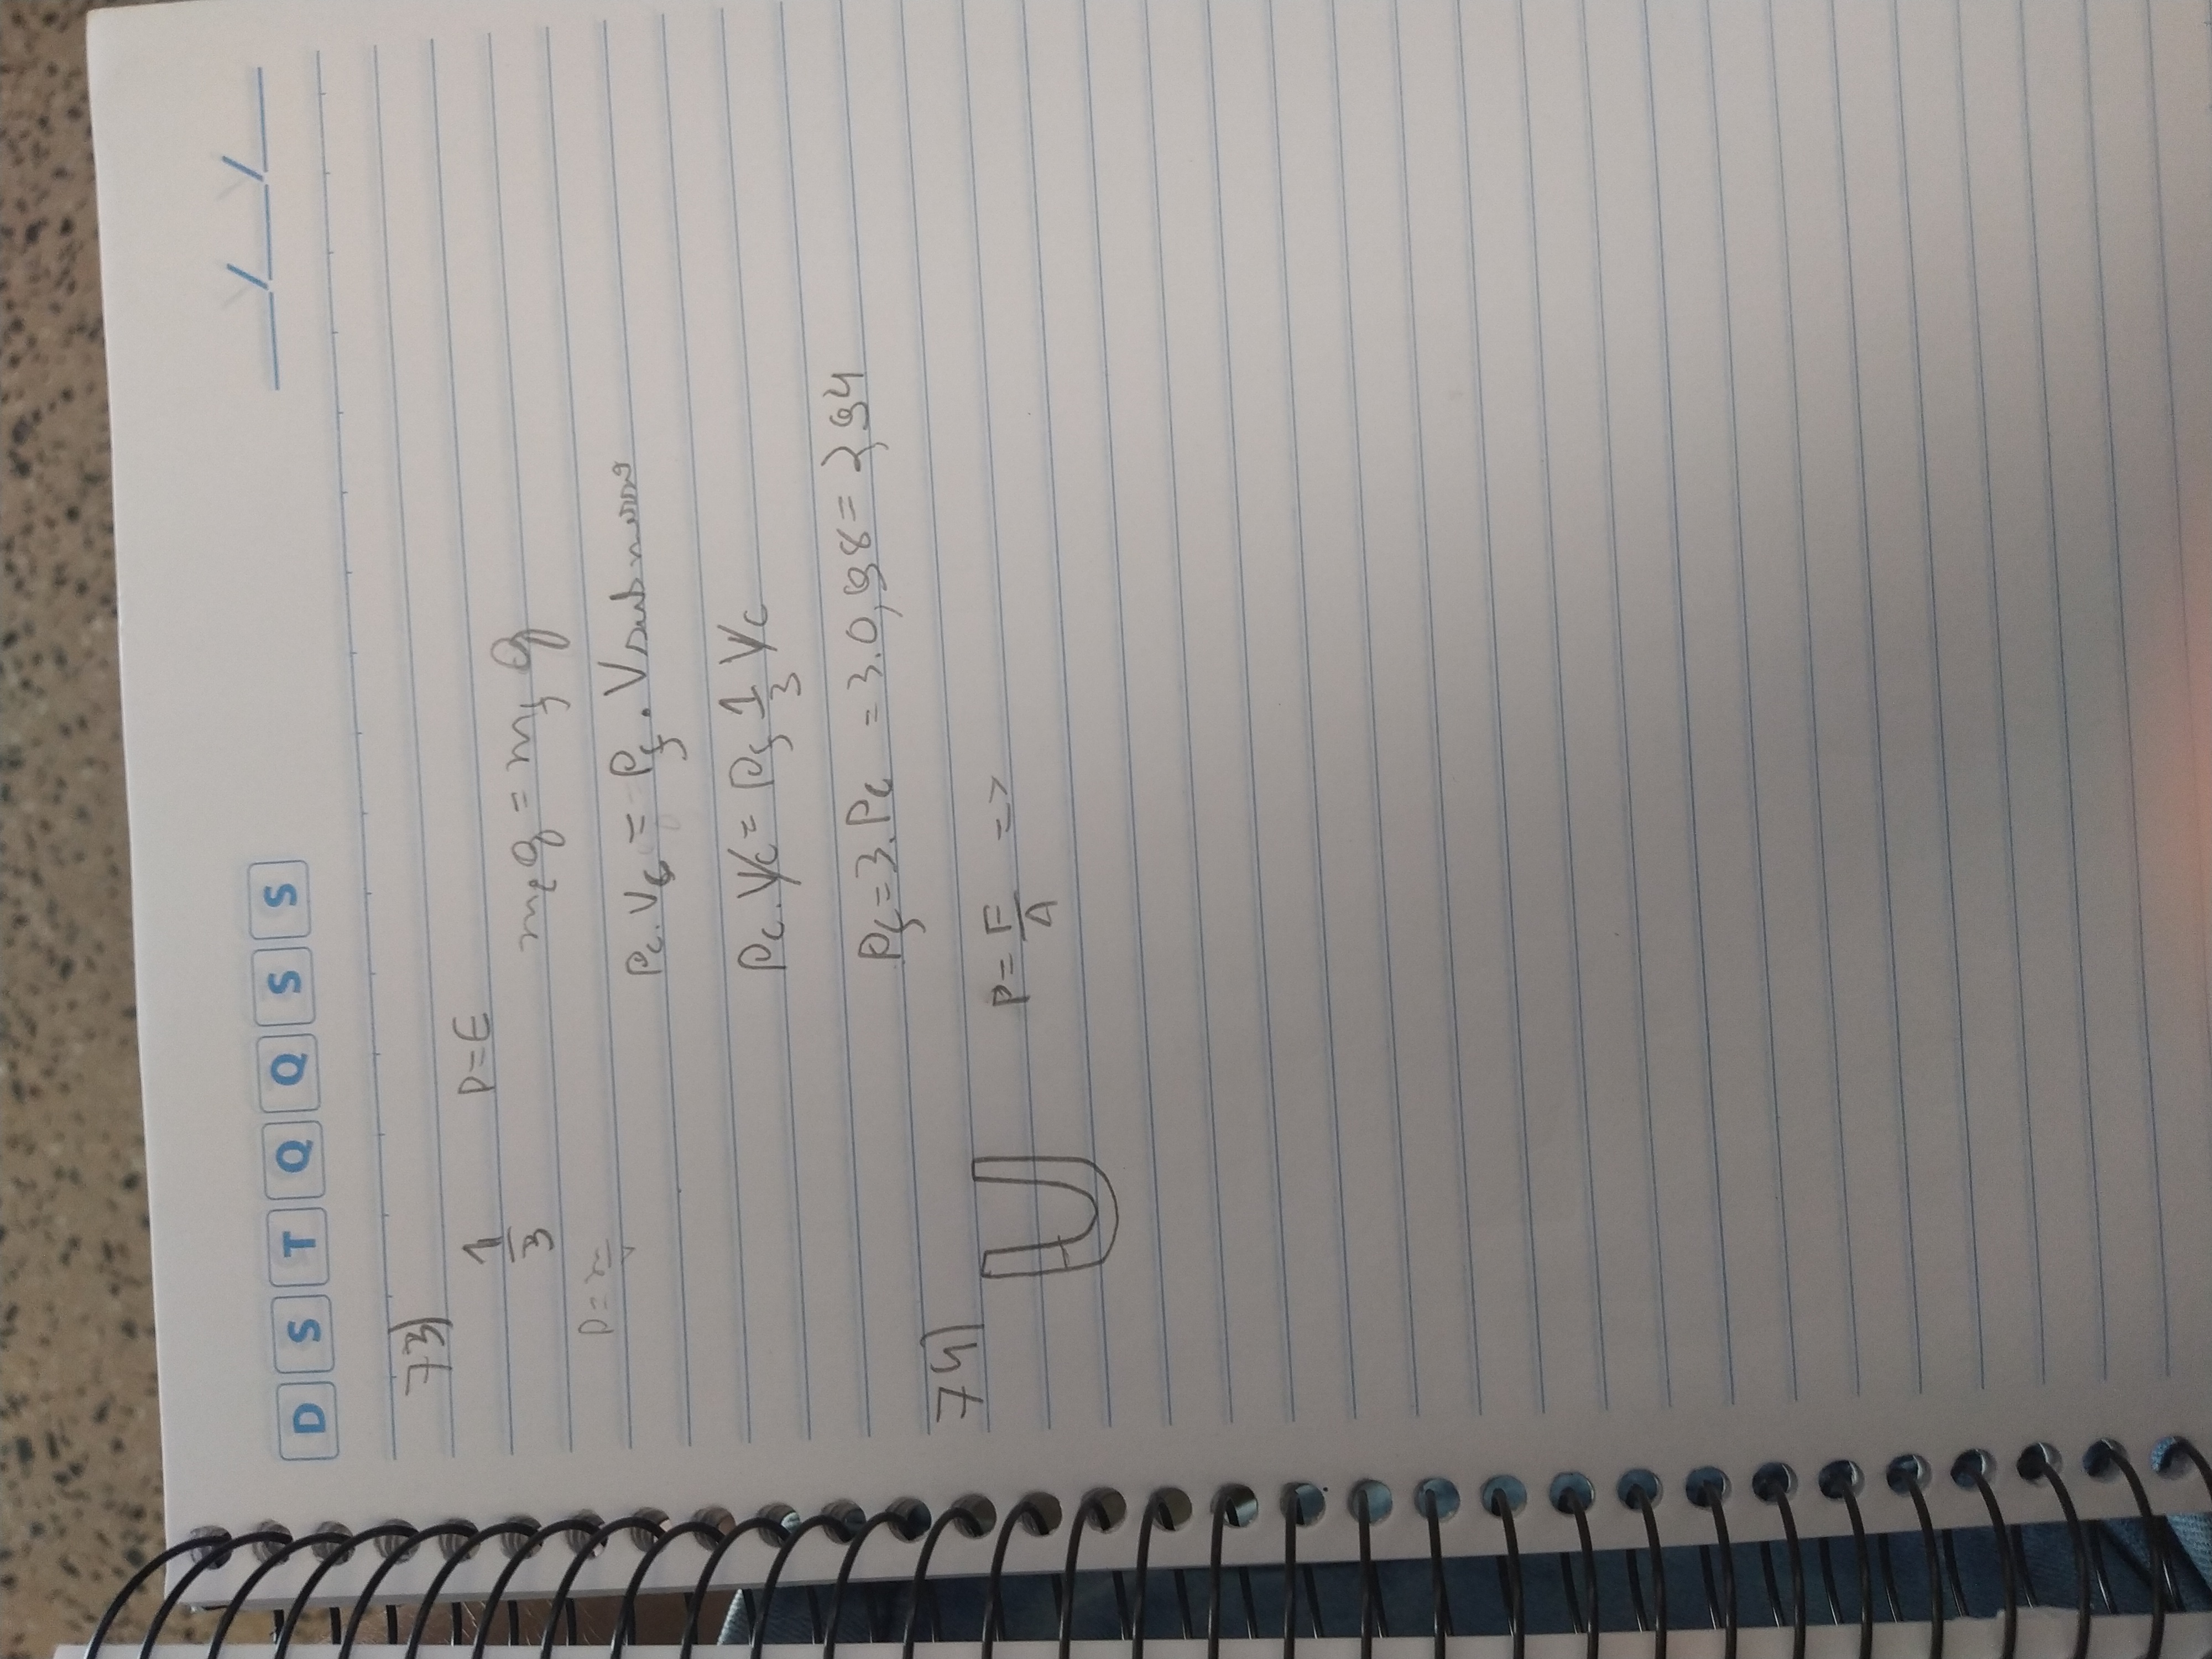 D S T Q Q S S __/__/__
73)
1/3 P=E
m_c g = m_f g
ρ = m/V
ρc.Vc = ρf.Vsubmerso
ρc.Vc = ρf 1/3 Vc
ρf = 3.ρc = 3.0,98 = 2,94
74)
P = F/A =>